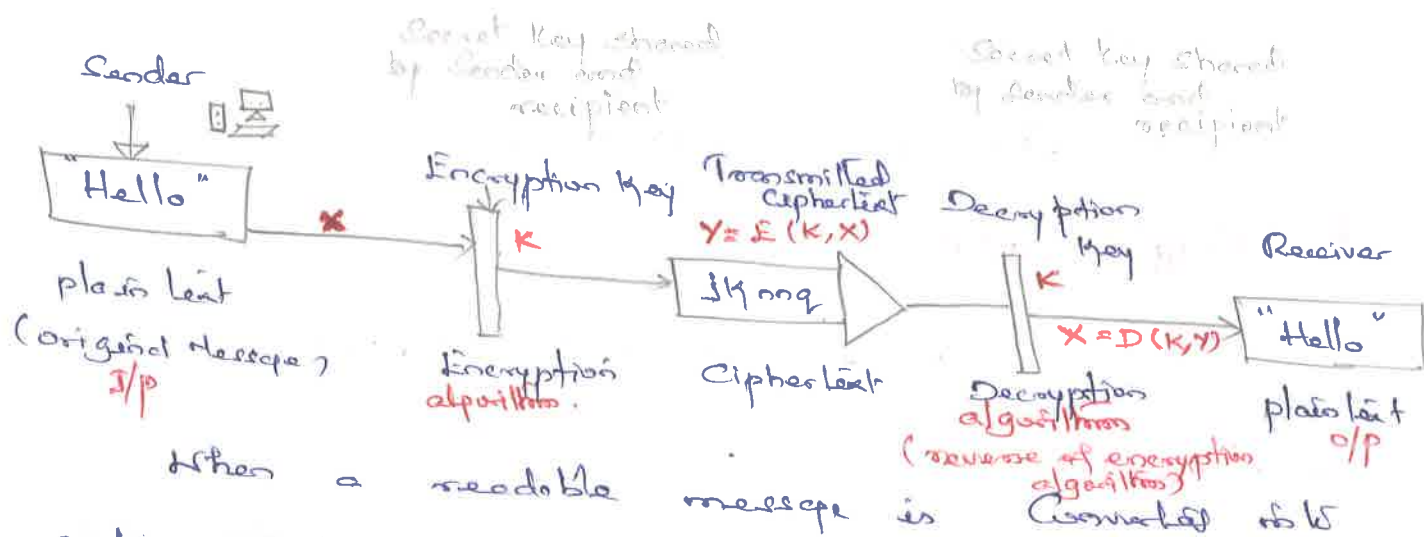 Secret key shared
by Sender and
recipient
Secret key shared
by sender and
recipient
Sender
"Hello"
X
plain text
(original Message)
I/p
Encryption Key
K
Encryption
algorithm.
Transmitted
Ciphertext
Y = E (K, X)
Ciphertext
Decryption
Key
K
X = D (K, Y)
Decryption
algorithm
(reverse of encryption
algorithm)
Receiver
"Hello"
plain text
o/p
When a readable message is Converted into